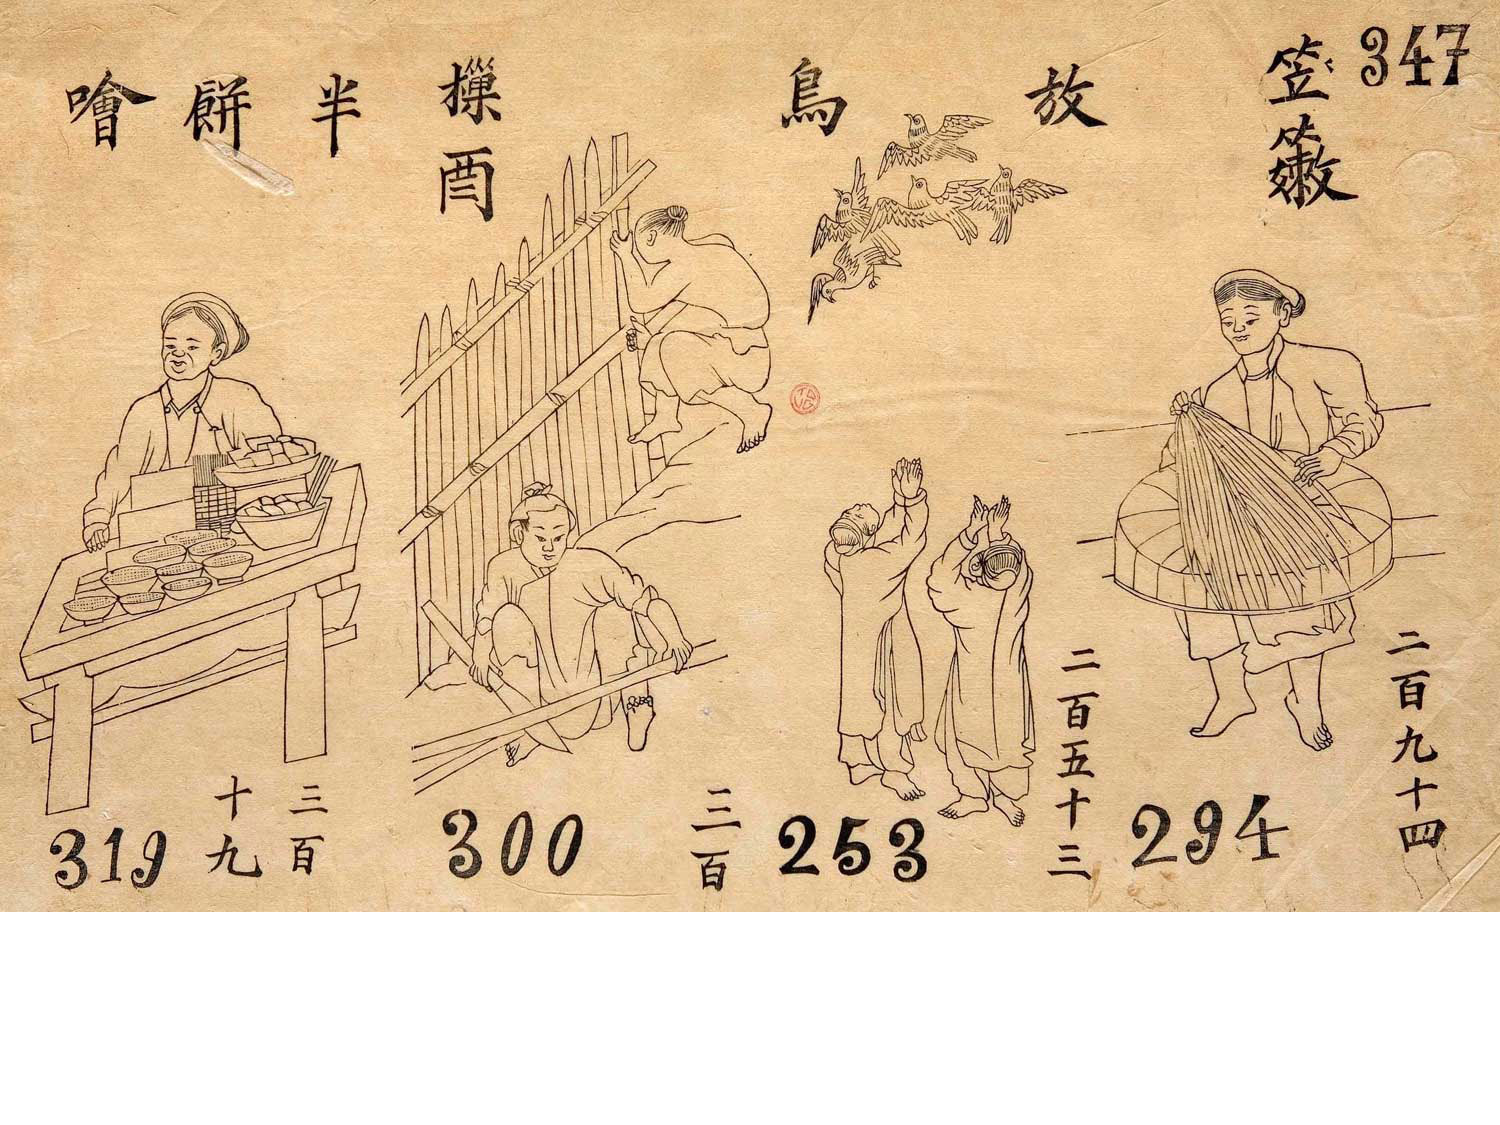 347
笠𥶄
二百九十四
294
放鳥
二百五十三
253
摷酉
三百
300
半餅噲
三百
十九
319